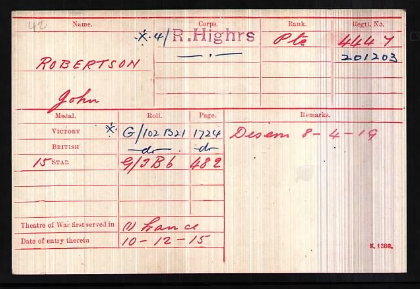 42
Name. Corps. Rank. Regtl. No.
X. 4/ R. Highrs Pte 4447
201203
ROBERTSON
John
Medal. Roll. Page. Remarks.
VICTORY X. G/102 B21 1724 Disem 8-4-19
BRITISH do. do
15 STAR G/1B6 482
Theatre of War first served in (1) France
Date of entry therein 10-12-15
K. 1380.